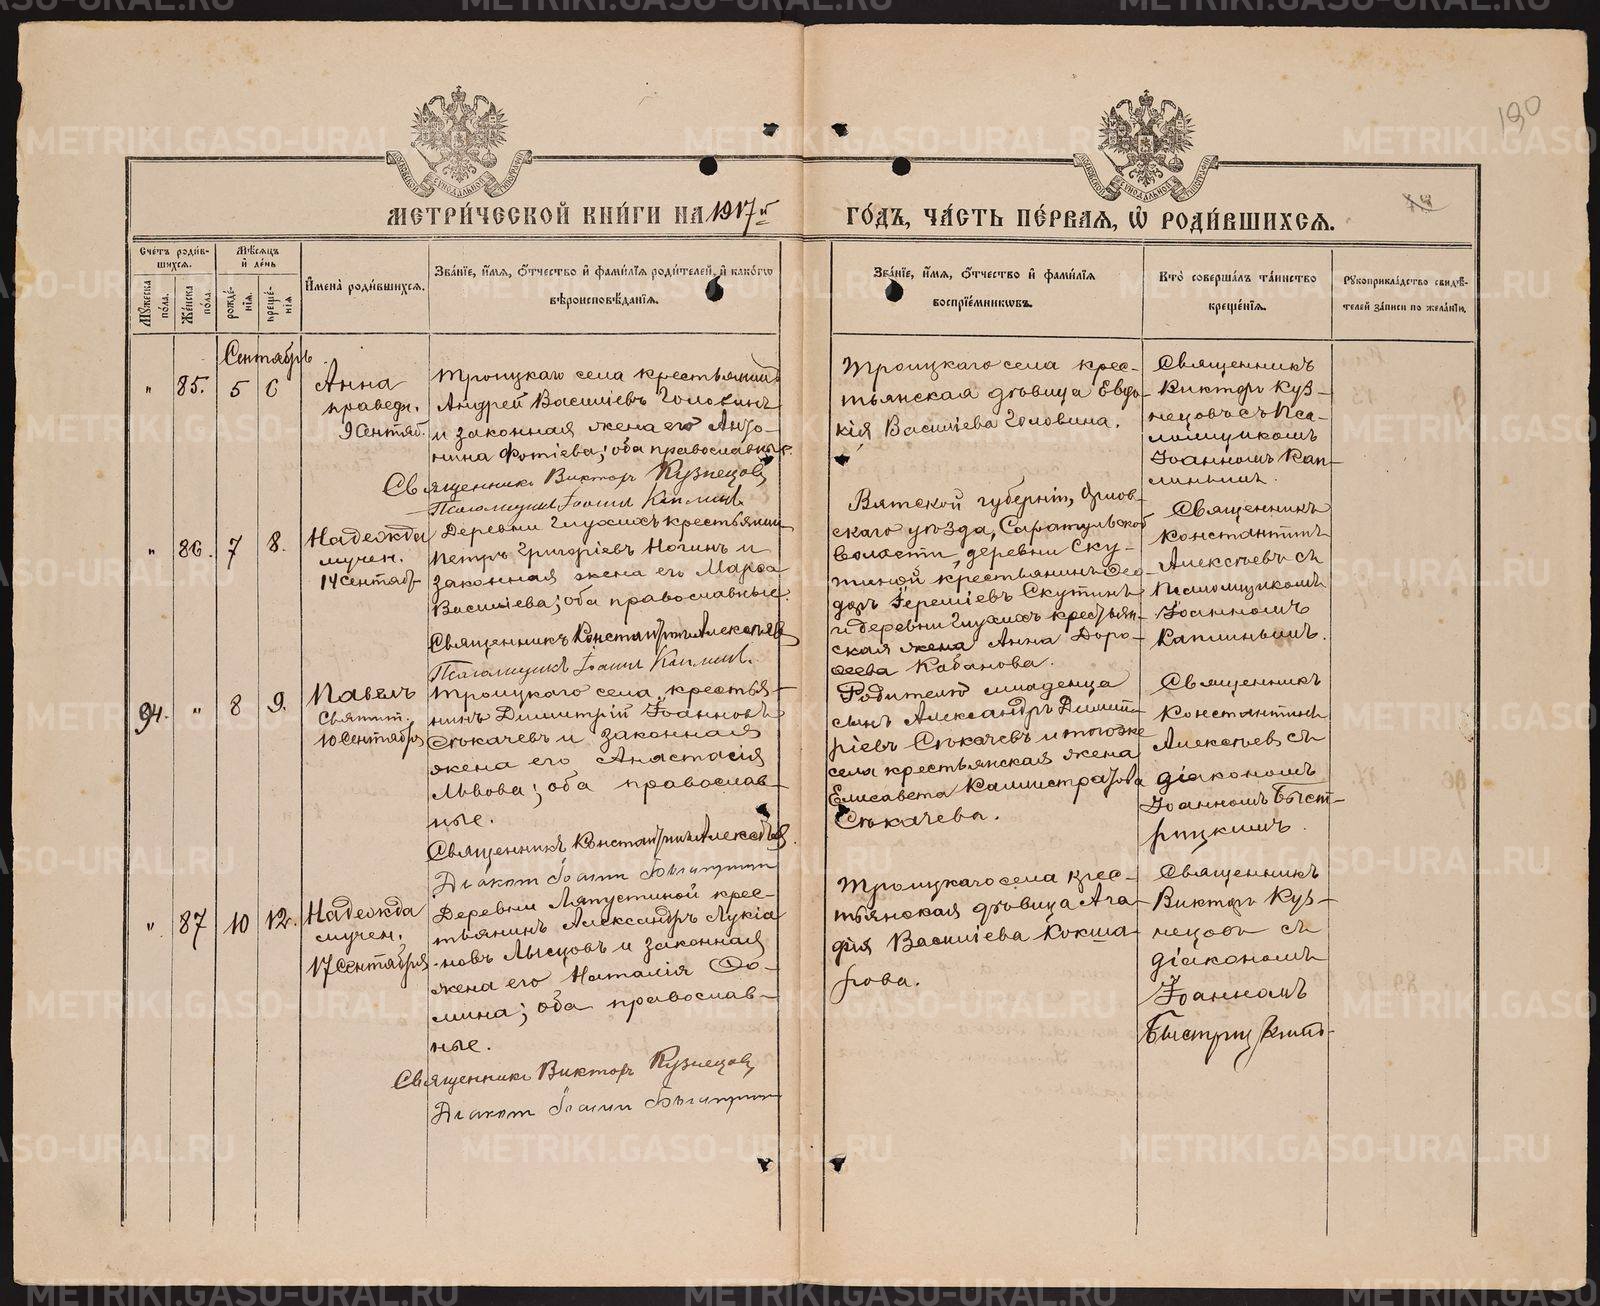 190
МОСКОВСКОЙ СѴНОДАЛЬНОЙ ТИПОГРАФІИ
МОСКОВСКОЙ СѴНОДАЛЬНОЙ ТИПОГРАФІИ
МЕТРИ́ЧЕСКОЙ КНИ́ГИ НА 1917й
ГО́ДЪ, ЧА́СТЬ ПЕ́РВАЯ, Ѡ РОДИ́ВШИХСЯ.
Сче́тъ роди́в-
шихся.
Мѣ́сяцъ
и де́нь
Му́жеска
по́ла.
Же́нска
по́ла.
рожде́-
нія.
креще́-
нія
Имена̀ роди́вшихся.
Зва́ніе, и́мя, о́тчество и фами́лія роди́телей, и како́гѡ
вѣроисповѣ́данія.
Зва́ніе, и́мя, о́тчество и фами́лія
воспріе́мниковъ.
Кто̀ соверша́лъ та́инство
креще́нія.
Рукоприкла́дство свидѣ́-
телей за́писи по жела́нію.
Сентябрь.
" 85. 5 6
Анна
праведн.
9 Сентяб.
Троицкаго села крестьянинъ
Андрей Васильевъ Головинъ
и законная жена его Анто-
нина Фотіева; оба православные.
Священникъ Викторъ Кузнецовъ
Псаломщикъ Іоаннъ Каплинъ
Троицкаго села крес-
тьянская дѣвица Евдо-
кія Васильева Головина.
Священникъ
Викторъ Куз-
нецовъ съ Пса-
ломщикомъ
Іоанномъ Кап-
линымъ.
" 86. 7 8.
Надежда
мучен.
14 Сентяб.
Деревни Глухихъ крестьянин
Петръ Григоріевъ Ногинъ и
законная жена его Марѳа
Васильева; оба православные.
Священникъ Константинъ Алексѣевъ
Псаломщикъ Іоаннъ Каплинъ.
Вятской губерніи, Орлов-
скаго уѣзда,
волости деревни Ску-
тиной крестьянинъ Ѳео-
доръ Скутинъ
и деревни Глухихъ крестьян-
ская жена Анна Доро-
ѳеева Кабанова.
Священникъ
Константинъ
Алексѣевъ съ
Псаломщикомъ
Іоанномъ
Каплинымъ.
94. " 8 9.
Павелъ
Святит.
10 Сентября
Троицкаго села крестья-
нинъ Димитрій Іоанновъ
Сѣкачевъ и законная
жена его Анастасія
Львова; оба православ-
ные.
Священникъ Константинъ Алексѣевъ
Діаконъ Іоаннъ Быстрицкій
Родителю младенца
сынъ Александръ Димит-
ріевъ Сѣкачевъ и того же
села крестьянская жена
Елисавета Каллистратова
Сѣкачева.
Священникъ
Константинъ
Алексѣевъ съ
діакономъ
Іоанномъ Быст-
рицкимъ.
" 87 10 12.
Надежда
мучен.
17 Сентября
Деревни Ляпустиной крес-
тьянинъ Александръ Лукіа-
новъ Лысцовъ и законная
жена его Наталія Ѳо-
мина; оба православ-
ные.
Священникъ Викторъ Кузнецовъ
Діаконъ Іоаннъ Быстрицкій
Троицкаго села крес-
тьянская дѣвица Ага-
фія Васильева Кокша-
рова.
Священникъ
Викторъ Куз-
нецовъ съ
діакономъ
Іоанномъ
Быстрицкимъ.
METRIKI.GASO-URAL.RU